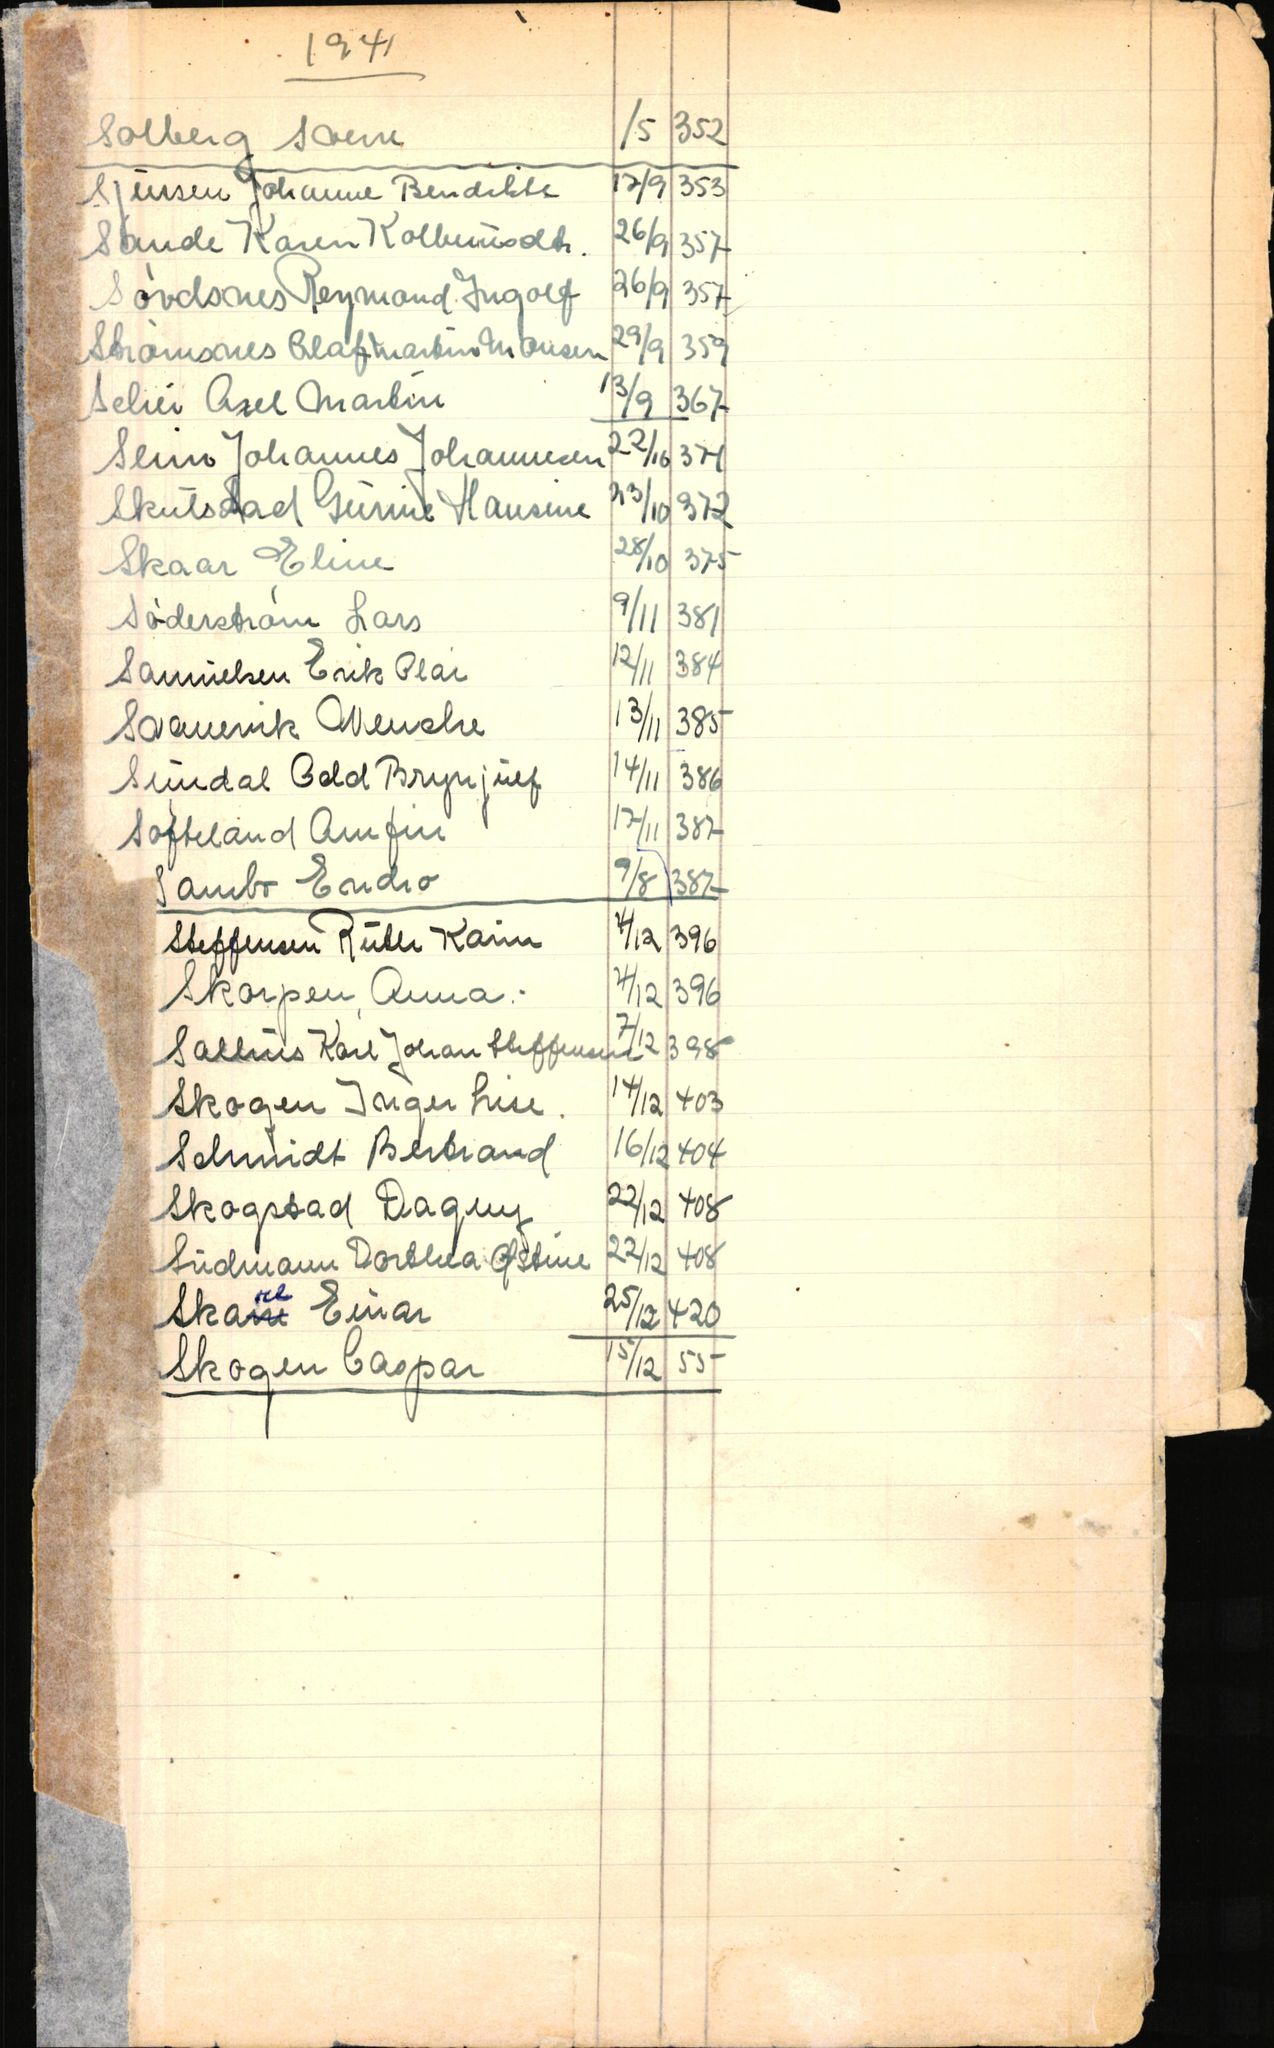 1941
Solberg Sverre /5 352
Sjursen Johanne Bendikte 17/9 353
Sande Karen Kolbeinsdtr. 26/9 357
Sövdsnes Reymond Ingolf 26/9 357
Strömsnes Olaf Martin Monsen 29/9 359
Schei Axel Martin 13/9 367
Seim Johannes Johannesen 22/10 371
Skutstad Gurine Hansine 23/10 372
Skaar Eline 28/10 375
Söderström Lars 9/11 381
Samuelsen Erik Olai 12/11 384
Svanevik Wenche 13/11 385
Sundal Odd Brynjulf 14/11 386
Softeland Arnfin 17/11 387
Sambo Endre 9/8 387
Steffensen Ruth Karin 4/12 396
Skorpen Anna. 4/12 396
Karl Johan Steffensen 7/12 398
Skogen Inger Lise. 14/12 403
Schmidt Bertrand 16/12 404
Skogstad Dagny 22/12 408
Sudmann Dorthea 22/12 408
Skarel Einar 25/12 420
Skogen Caspar 15/12 55